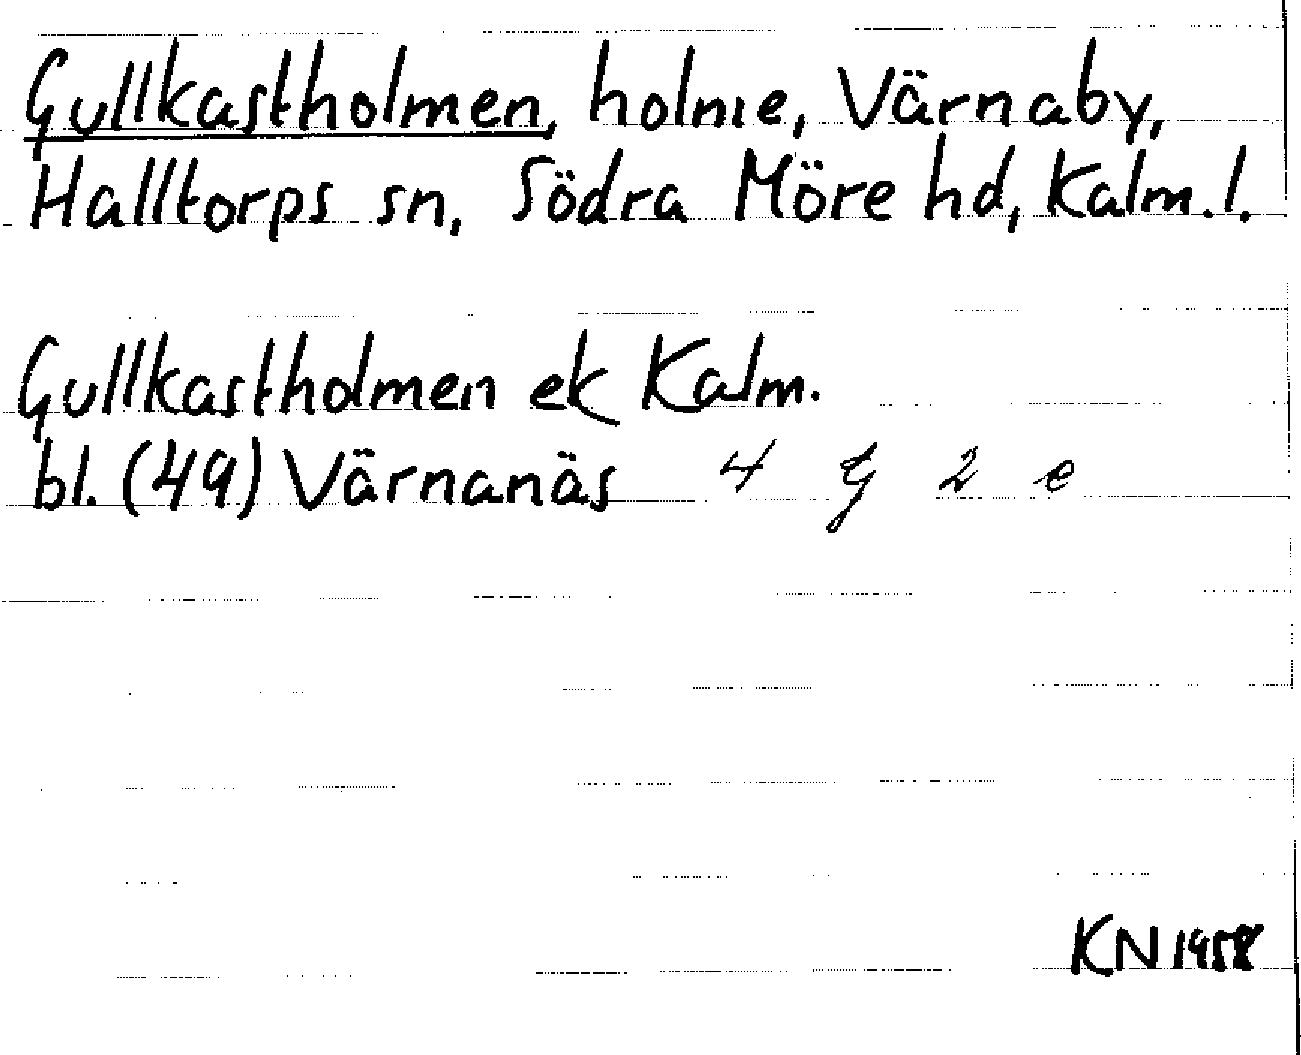 Gullkastholmen, holme, Värnaby,
Halltorps sn, Södra Möre hd, Kalm.l.
Gullkastholmen ek Kalm.
bl. (49) Värnanäs 4 G 2 e
KN 1958